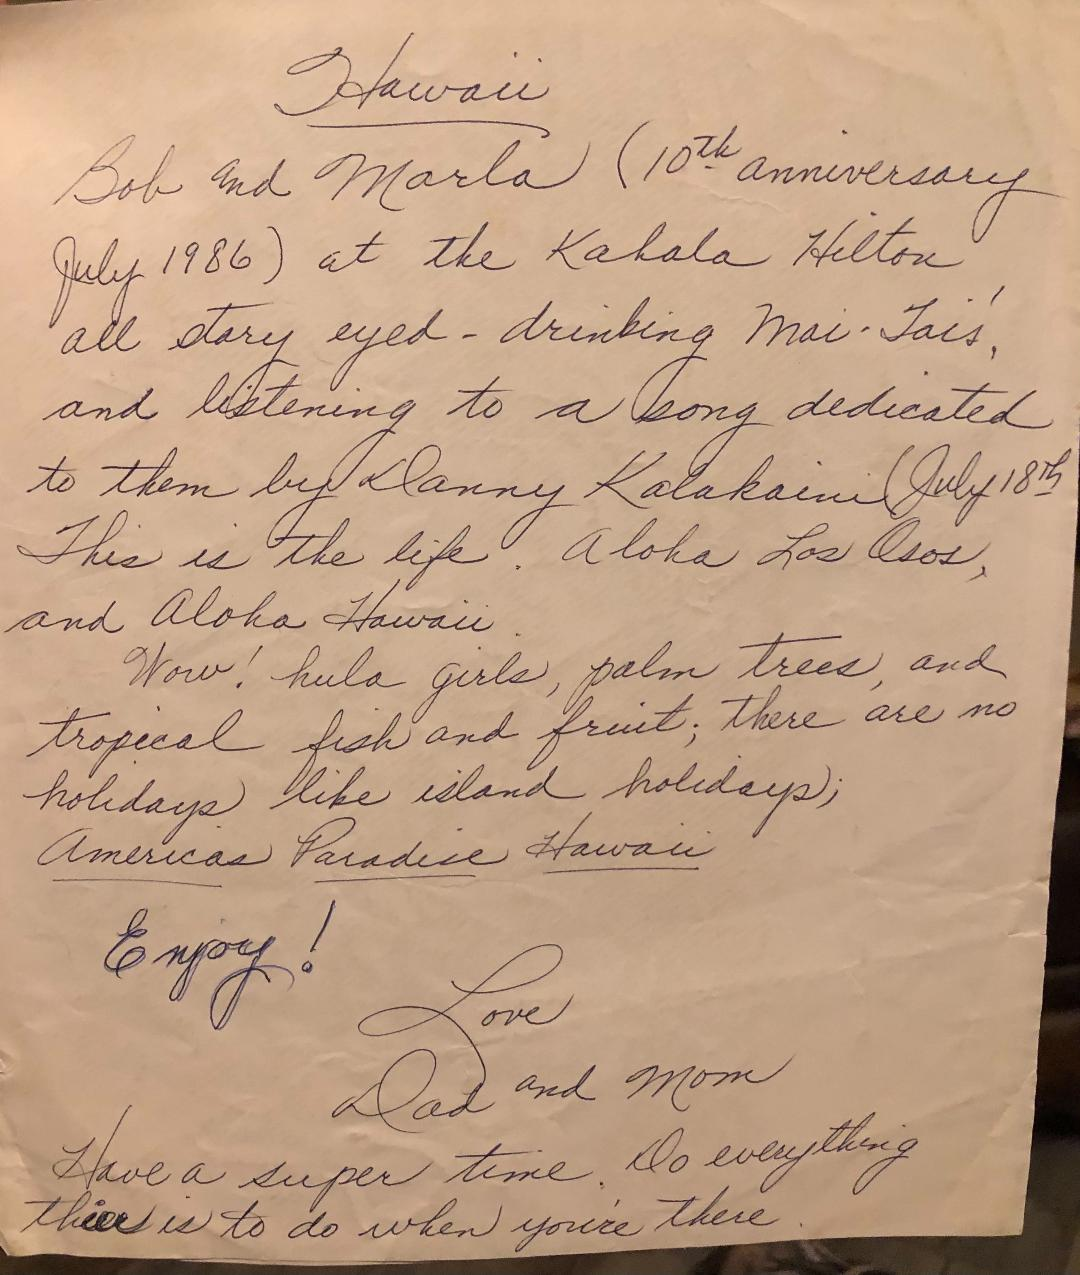 Hawaii
Bob and Marla (10th anniversary
July 1986) at the Kahala Hilton
all stary eyed - drinking Mai-Tai's,
and listening to a song dedicated
to them by Danny Kalakaini (July 18th
This is the life. Aloha Los Osos,
and Aloha Hawaii.
Wow! hula girls, palm trees, and
tropical fish and fruit; there are no
holidays like island holidays;
Americas Paradise Hawaii
Enjoy!
Love
Dad and Mom
Have a super time. Do everything
is to do when you're there.